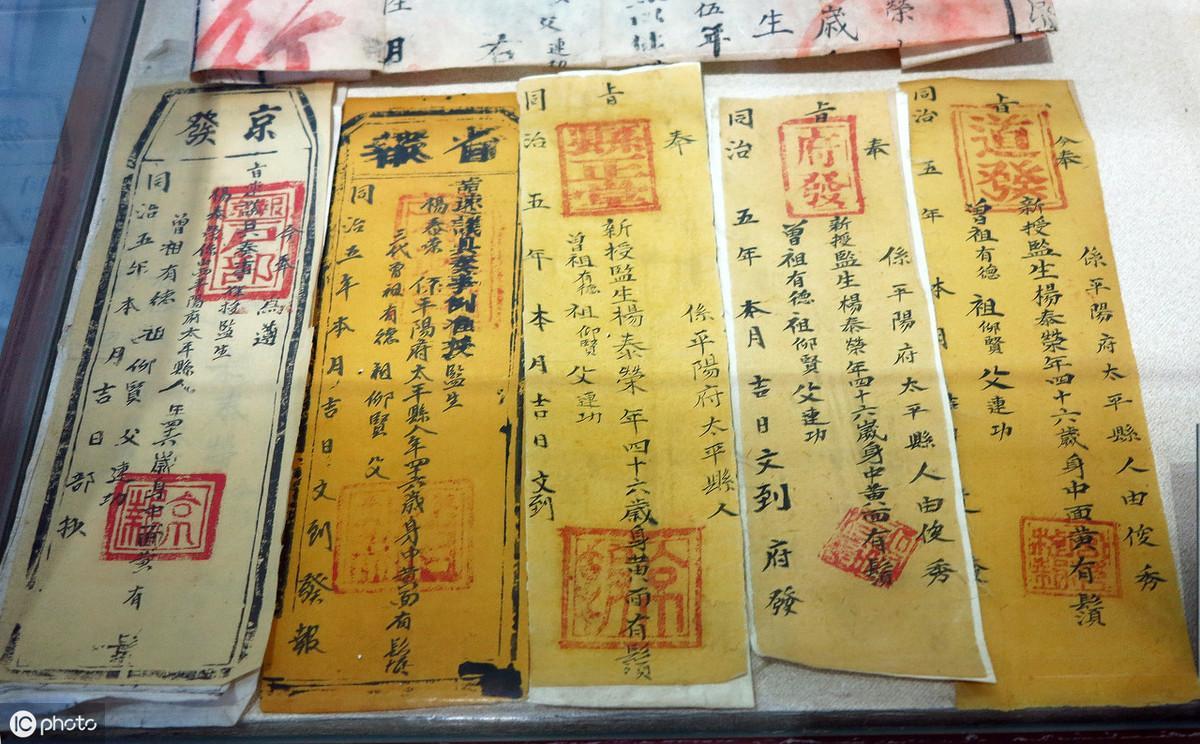 榮
歲
生
伍年
父連功
月
奉
旨
道發
係平陽府太平縣人由俊秀
新授監生楊泰榮年四十六歲身中面黃有鬚
曾祖有德祖仰賢父連功
同治五年本月
奉
旨
府發
係平陽府太平縣人由俊秀
新授監生楊泰榮年四十六歲身中黃面有鬚
曾祖有德祖仰賢父連功
同治五年本月吉日文到府發
奉
旨
縣正堂
係平陽府太平縣人
新授監生楊泰榮年四十六歲身黃面有鬚
曾祖有德祖仰賢父連功
同治五年本月吉日文到
省報
速議具奏事例准授監生
楊泰榮係平陽府太平縣人年四十六歲身中黃面有鬚
三代曾祖有德祖仰賢父
同治五年本月吉日文到發報
京發
今奉
為遵
旨速議具奏事准授監生
楊泰榮係平陽府太平縣人年四十六歲身中面黃有鬚
曾祖有德祖仰賢父連功
同治五年本月吉日部
IC photo